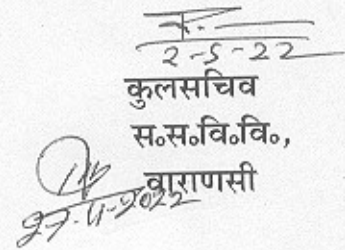 2-5-22
कुलसचिव
स०स०वि०वि०,
वाराणसी
27-4-2022